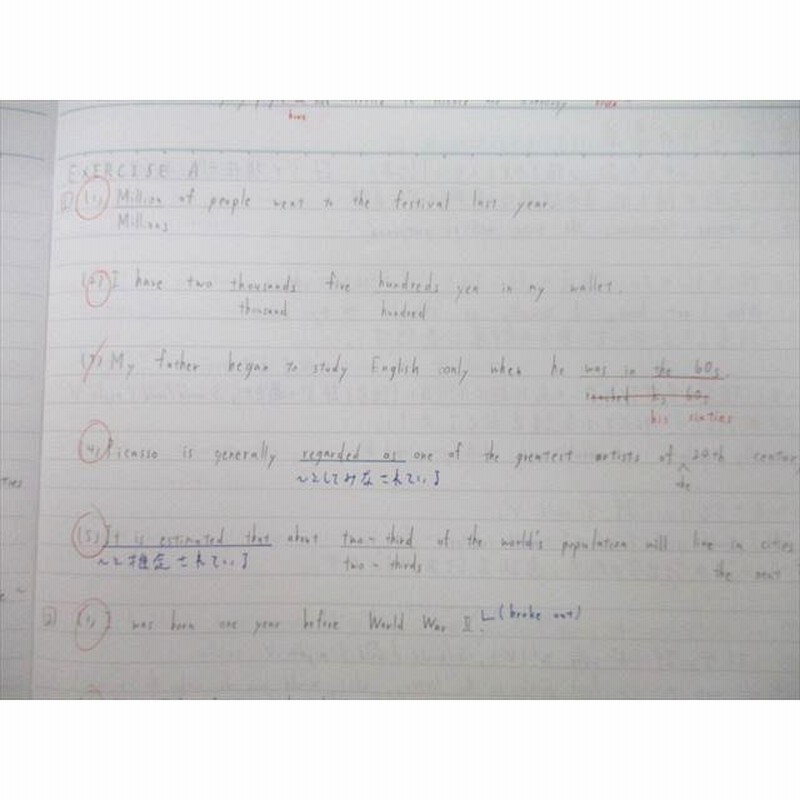 EXERCISE A
1 (1) Million of people went to the festival last year.
Millions
(2) I have two thousands five hundreds yen in my wallet.
thousand hundred
(3) My father began to study English only when he was in the 60s.
his sixties
(4) Picasso is generally regarded as one of the greatest artists of 20th century
〜としてみなされている the
(5) It is estimated that about two-third of the world's population will live in cities
〜と推定されている two-thirds the next
2 (1) I was born one year before World War II. (broke out)